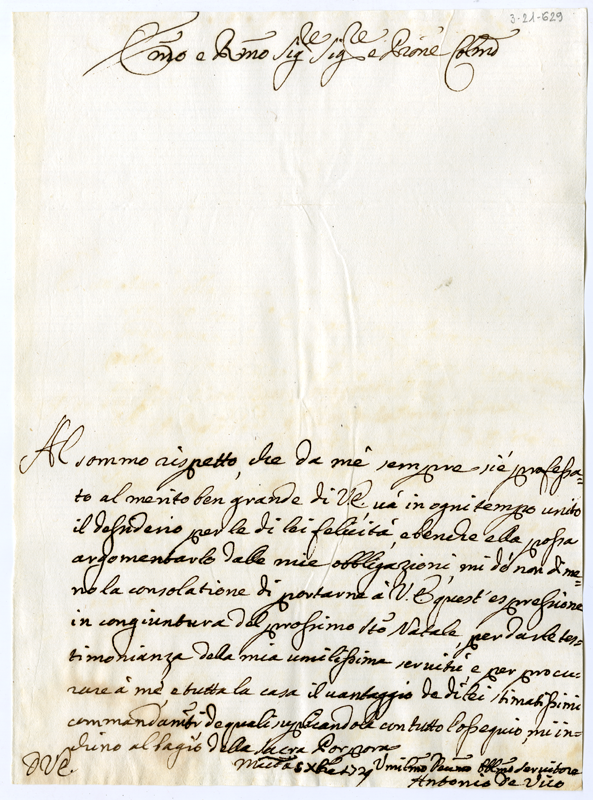 3-21-629
Emo e Rmo Sigre Sigre e Prone Colmo
Al sommo rispetto, che da mè sempre si è professa=
to al merito ben grande di V.E. và in ogni tempo unito
il desiderio per le di lei felicità, e benche ella possa
argomentarlo dalle mie obbligazioni, mi dò non dime=
no la consolatione di portarne à V.E. quest'espressione
in congiuntura del prossimo Sto Natale, per darle tes=
timonianza della mia umilissima servitù e per procu=
rare à mè, e tutta la casa il vantaggio de di lei stimatissimi
commandamti de quali supplicandola con tutto l'ossequio, mi in=
chino al bagio della Sacra Porpora
DVE. Umilmo Devmo Obbmo Servitore
Antonio De Vico